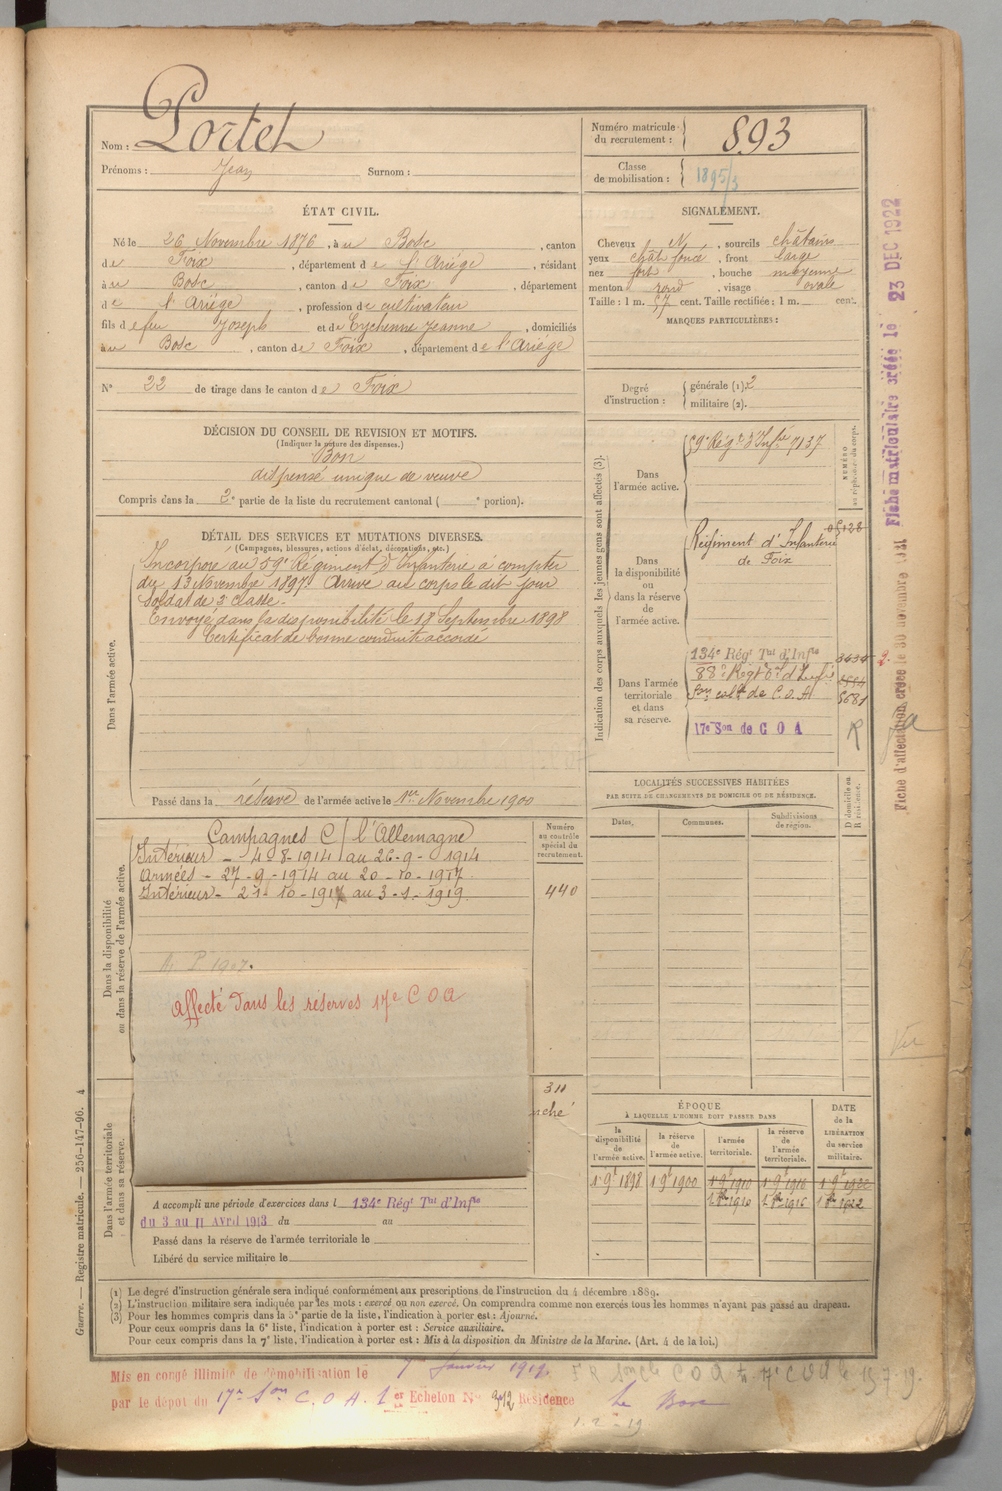 Nom : Portet
Numéro matricule du recrutement : 893
Prénoms : Jean Surnom :
Classe de mobilisation : 1895/3
ÉTAT CIVIL.
Né le 26 Novembre 1876, à u Bosc, canton
de Foix, département de l'Ariège, résidant
à u Bosc, canton de Foix, département
de l'Ariège, profession de cultivateur
fils de feu Joseph et de Eychenne Jeanne, domiciliés
à u Bosc, canton de Foix, département de l'Ariège
N° 22 de tirage dans le canton de Foix
SIGNALEMENT.
Cheveux N, sourcils châtains
yeux chât foncé, front large
nez fort, bouche moyenne
menton rond, visage ovale
Taille : 1 m. 57 cent. Taille rectifiée : 1 m. cent.
MARQUES PARTICULIÈRES :
Degré d'instruction : générale (1) 2
militaire (2).
DÉCISION DU CONSEIL DE REVISION ET MOTIFS.
(Indiquer la nature des dispenses.)
Bon
dispensé unique de veuve
Compris dans la 2e partie de la liste du recrutement cantonal ( e portion).
DÉTAIL DES SERVICES ET MUTATIONS DIVERSES.
(Campagnes, blessures, actions d'éclat, décorations, etc.)
Dans l'armée active.
Incorporé au 59e Régiment d'Infanterie à compter
du 13 Novembre 1897. Arrivé au corps le dit jour
Soldat de 2e classe.
Envoyé dans la disponibilité le 18 Septembre 1898
Certificat de bonne conduite accordé
Passé dans la réserve de l'armée active le 1er Novembre 1900
Indication des corps auxquels les jeunes gens sont affectés (3).
NUMÉRO au répertoire du corps.
Dans l'armée active.
59e Régt d'Infie 7137
Dans la disponibilité ou dans la réserve de l'armée active.
Régiment d'Infanterie
de Foix
Dans l'armée territoriale et dans sa réserve.
134e Régt Tal d'Infie 3434
88e Régt
5681
17e Son de C O A
R
LOCALITÉS SUCCESSIVES HABITÉES
PAR SUITE DE CHANGEMENTS DE DOMICILE OU DE RÉSIDENCE.
Dates. Communes. Subdivisions de région. D domicile ou R résidence.
Dans la disponibilité ou dans la réserve de l'armée active.
Campagnes C/ l'Allemagne
Intérieur - 4-8-1914 au 26-9-1914
Armées - 27-9-1914 au 20-10-1917
Intérieur - 21-10-1917 au 3-1-1919
Numéro au contrôle spécial du recrutement.
440
P. 1907.
Affecté dans les réserves 17e C O A
311
nché
Dans l'armée territoriale et dans sa réserve.
A accompli une période d'exercices dans l 134e Régt Tal d'Infie
du 3 au 11 Avril 1913 du au
Passé dans la réserve de l'armée territoriale le
Libéré du service militaire le
ÉPOQUE
À LAQUELLE L'HOMME DOIT PASSER DANS
DATE de la LIBÉRATION du service militaire.
la disponibilité de l'armée active. la réserve de l'armée active. l'armée territoriale. la réserve de l'armée territoriale.
1 9e 1898 1 9e 1900 1 9e 1910 1 9e 1916 1 9e 1922
1 8bre 1910 1 8bre 1916 1 8bre 1922
(1) Le degré d'instruction générale sera indiqué conformément aux prescriptions de l'instruction du 4 décembre 1889.
(2) L'instruction militaire sera indiquée par les mots : exercé ou non exercé. On comprendra comme non exercés tous les hommes n'ayant pas passé au drapeau.
(3) Pour les hommes compris dans la 5e partie de la liste, l'indication à porter est : Ajourné.
Pour ceux compris dans la 6e liste, l'indication à porter est : Service auxiliaire.
Pour ceux compris dans la 7e liste, l'indication à porter est : Mis à la disposition du Ministre de la Marine. (Art. 4 de la loi.)
Guerre. — Registre matricule. — 256-147-96. 4
Mis en congé illimité de démobilisation le 7 Janvier 1919.
par le dépôt du 17e Son C.O.A. 1er Echelon N° 372 Résidence Le Bosc
1-2-19
Fiche matriculaire créée le 23 DEC 1922
Fiche d'affectation créée le 30 novembre 1921